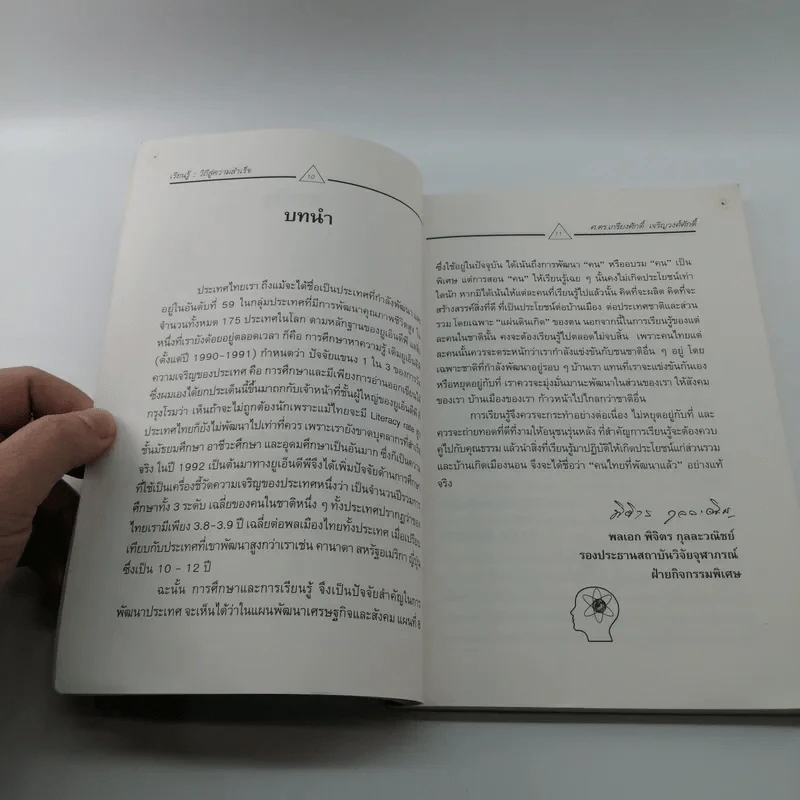 เรียนรู้ : วิถีสู่ความสำเร็จ
10
บทนำ
ประเทศไทยเรา ถึงแม้จะได้ชื่อเป็นประเทศที่กำลังพัฒนา แต่
อยู่ในอันดับที่ 59 ในกลุ่มประเทศที่มีการพัฒนาคุณภาพชีวิตสูง
จำนวนทั้งหมด 175 ประเทศในโลก ตามหลักฐานของยูเอ็นดีพี
หนึ่งที่เรายังด้อยอยู่ตลอดเวลา ก็คือ การศึกษาหาความรู้ เดิมยูเอ็นดีพี
(ตั้งแต่ปี 1990-1991) กำหนดว่า ปัจจัยแขนง 1 ใน 3 ของการวัด
ความเจริญของประเทศ คือ การศึกษาและมีเพียงการอ่านออกเขียนได้
ซึ่งผมเองได้ยกประเด็นนี้ขึ้นมาถกกับเจ้าหน้าที่ชั้นผู้ใหญ่ของยูเอ็นดีพี
กรุงโรมว่า เห็นท่าจะไม่ถูกต้องนักเพราะแม้ไทยจะมี Literacy rate สูง
ประเทศไทยก็ยังไม่พัฒนาไปเท่าที่ควร เพราะเรายังขาดบุคลากรที่สำเร็จ
ชั้นมัธยมศึกษา อาชีวะศึกษา และอุดมศึกษาเป็นอันมาก ซึ่งก็เป็นความ
จริง ในปี 1992 เป็นต้นมาทางยูเอ็นดีพีจึงได้เพิ่มปัจจัยด้านการศึกษา
ที่ใช้เป็นเครื่องชี้วัดความเจริญของประเทศหนึ่งว่า เป็นจำนวนปีรวมการ
ศึกษาทั้ง 3 ระดับ เฉลี่ยของคนในชาติหนึ่ง ๆ ทั้งประเทศปรากฏว่าของ
ไทยเรามีเพียง 3.8-3.9 ปี เฉลี่ยต่อพลเมืองไทยทั้งประเทศ เมื่อเปรียบ
เทียบกับประเทศที่เขาพัฒนาสูงกว่าเราเช่น คานาดา สหรัฐอเมริกา ญี่ปุ่น
ซึ่งเป็น 10 - 12 ปี
ฉะนั้น การศึกษาและการเรียนรู้ จึงเป็นปัจจัยสำคัญในการ
พัฒนาประเทศ จะเห็นได้ว่าในแผนพัฒนาเศรษฐกิจและสังคม แผนที่ 8
11
ศ.ดร.เกรียงศักดิ์ เจริญวงศ์ศักดิ์
ซึ่งใช้อยู่ในปัจจุบัน ได้เน้นถึงการพัฒนา "คน" หรืออบรม "คน" เป็น
พิเศษ แต่การสอน "คน" ให้เรียนรู้เฉย ๆ นั้นคงไม่เกิดประโยชน์เท่า
ใดนัก หากมิได้เน้นให้แต่ละคนที่เรียนรู้ไปแล้วนั้น คิดที่จะผลิต คิดที่จะ
สร้างสรรค์สิ่งที่ดี ที่เป็นประโยชน์ต่อบ้านเมือง ต่อประเทศชาติและส่วน
รวม โดยเฉพาะ "แผ่นดินเกิด" ของตน นอกจากนี้ในการเรียนรู้ของแต่
ละคนในชาตินั้น คงจะต้องเรียนรู้ไปตลอดไม่จบสิ้น เพราะคนไทยแต่
ละคนนั้นควรจะตระหนักว่าเรากำลังแข่งขันกับชนชาติอื่น ๆ อยู่ โดย
เฉพาะชาติที่กำลังพัฒนาอยู่รอบ ๆ บ้านเรา แทนที่เราจะแข่งขันกันเอง
หรือหยุดอยู่กับที่ เราควรจะมุ่งมั่นมานะพัฒนาในส่วนของเรา ให้สังคม
ของเรา บ้านเมืองของเรา ก้าวหน้าไปไกลกว่าชาติอื่น
การเรียนรู้จึงควรจะกระทำอย่างต่อเนื่อง ไม่หยุดอยู่กับที่ และ
ควรจะถ่ายทอดที่ดีที่งามให้อนุชนรุ่นหลัง ที่สำคัญการเรียนรู้จะต้องควบ
คู่ไปกับคุณธรรม แล้วนำสิ่งที่เรียนรู้มาปฏิบัติให้เกิดประโยชน์แก่ส่วนรวม
และบ้านเกิดเมืองนอน จึงจะได้ชื่อว่า "คนไทยที่พัฒนาแล้ว" อย่างแท้
จริง
พลเอก พิจิตร กุลละวณิชย์
รองประธานสถาบันวิจัยจุฬาภรณ์
ฝ่ายกิจกรรมพิเศษ